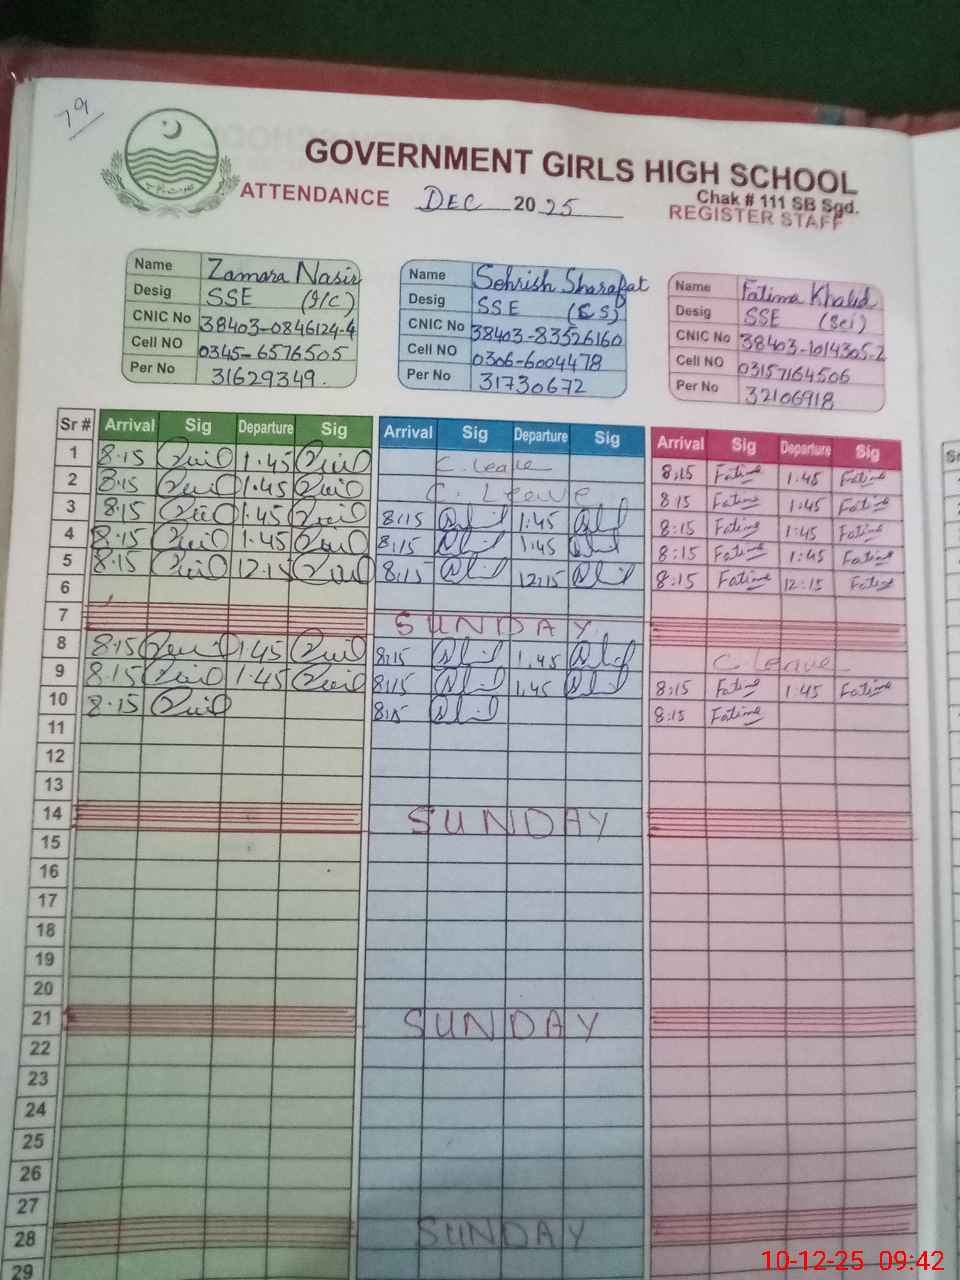 79
GOVERNMENT GIRLS HIGH SCHOOL
Chak # 111 SB Sgd.
ATTENDANCE DEC 2025 REGISTER STAFF
Name Zamara Nasir
Desig SSE (I/C)
CNIC No 38403-0846124-4
Cell NO 0345-6576505
Per No 31629349.
Name Sehrish Sharafat
Desig SSE (CS)
CNIC No 38403-83526160
Cell NO 0306-6004478
Per No 31730672
Name Fatima Khalid
Desig SSE (Sci)
CNIC No 38403-1014305-2
Cell NO 03157164506
Per No 32106918
Sr # Arrival Sig Departure Sig Arrival Sig Departure Sig Arrival Sig Departure Sig
1 8:15 1:45 C. Leave 8:15 Fatima 1:45 Fatima
2 8:15 1:45 C. Leave 8:15 Fatima 1:45 Fatima
3 8:15 1:45 8:15 1:45 8:15 Fatima 1:45 Fatima
4 8:15 1:45 8:15 1:45 8:15 Fatima 1:45 Fatima
5 8:15 12:15 8:15 12:15 8:15 Fatima 12:15 Fatima
6
7 SUNDAY
8 8:15 1:45 8:15 1:45 C. Leave
9 8:15 1:45 8:15 1:45 8:15 Fatima 1:45 Fatima
10 8:15 8:15 8:15 Fatima
11
12
13
14 SUNDAY
15
16
17
18
19
20
21 SUNDAY
22
23
24
25
26
27
28 SUNDAY
29
10-12-25 09:42